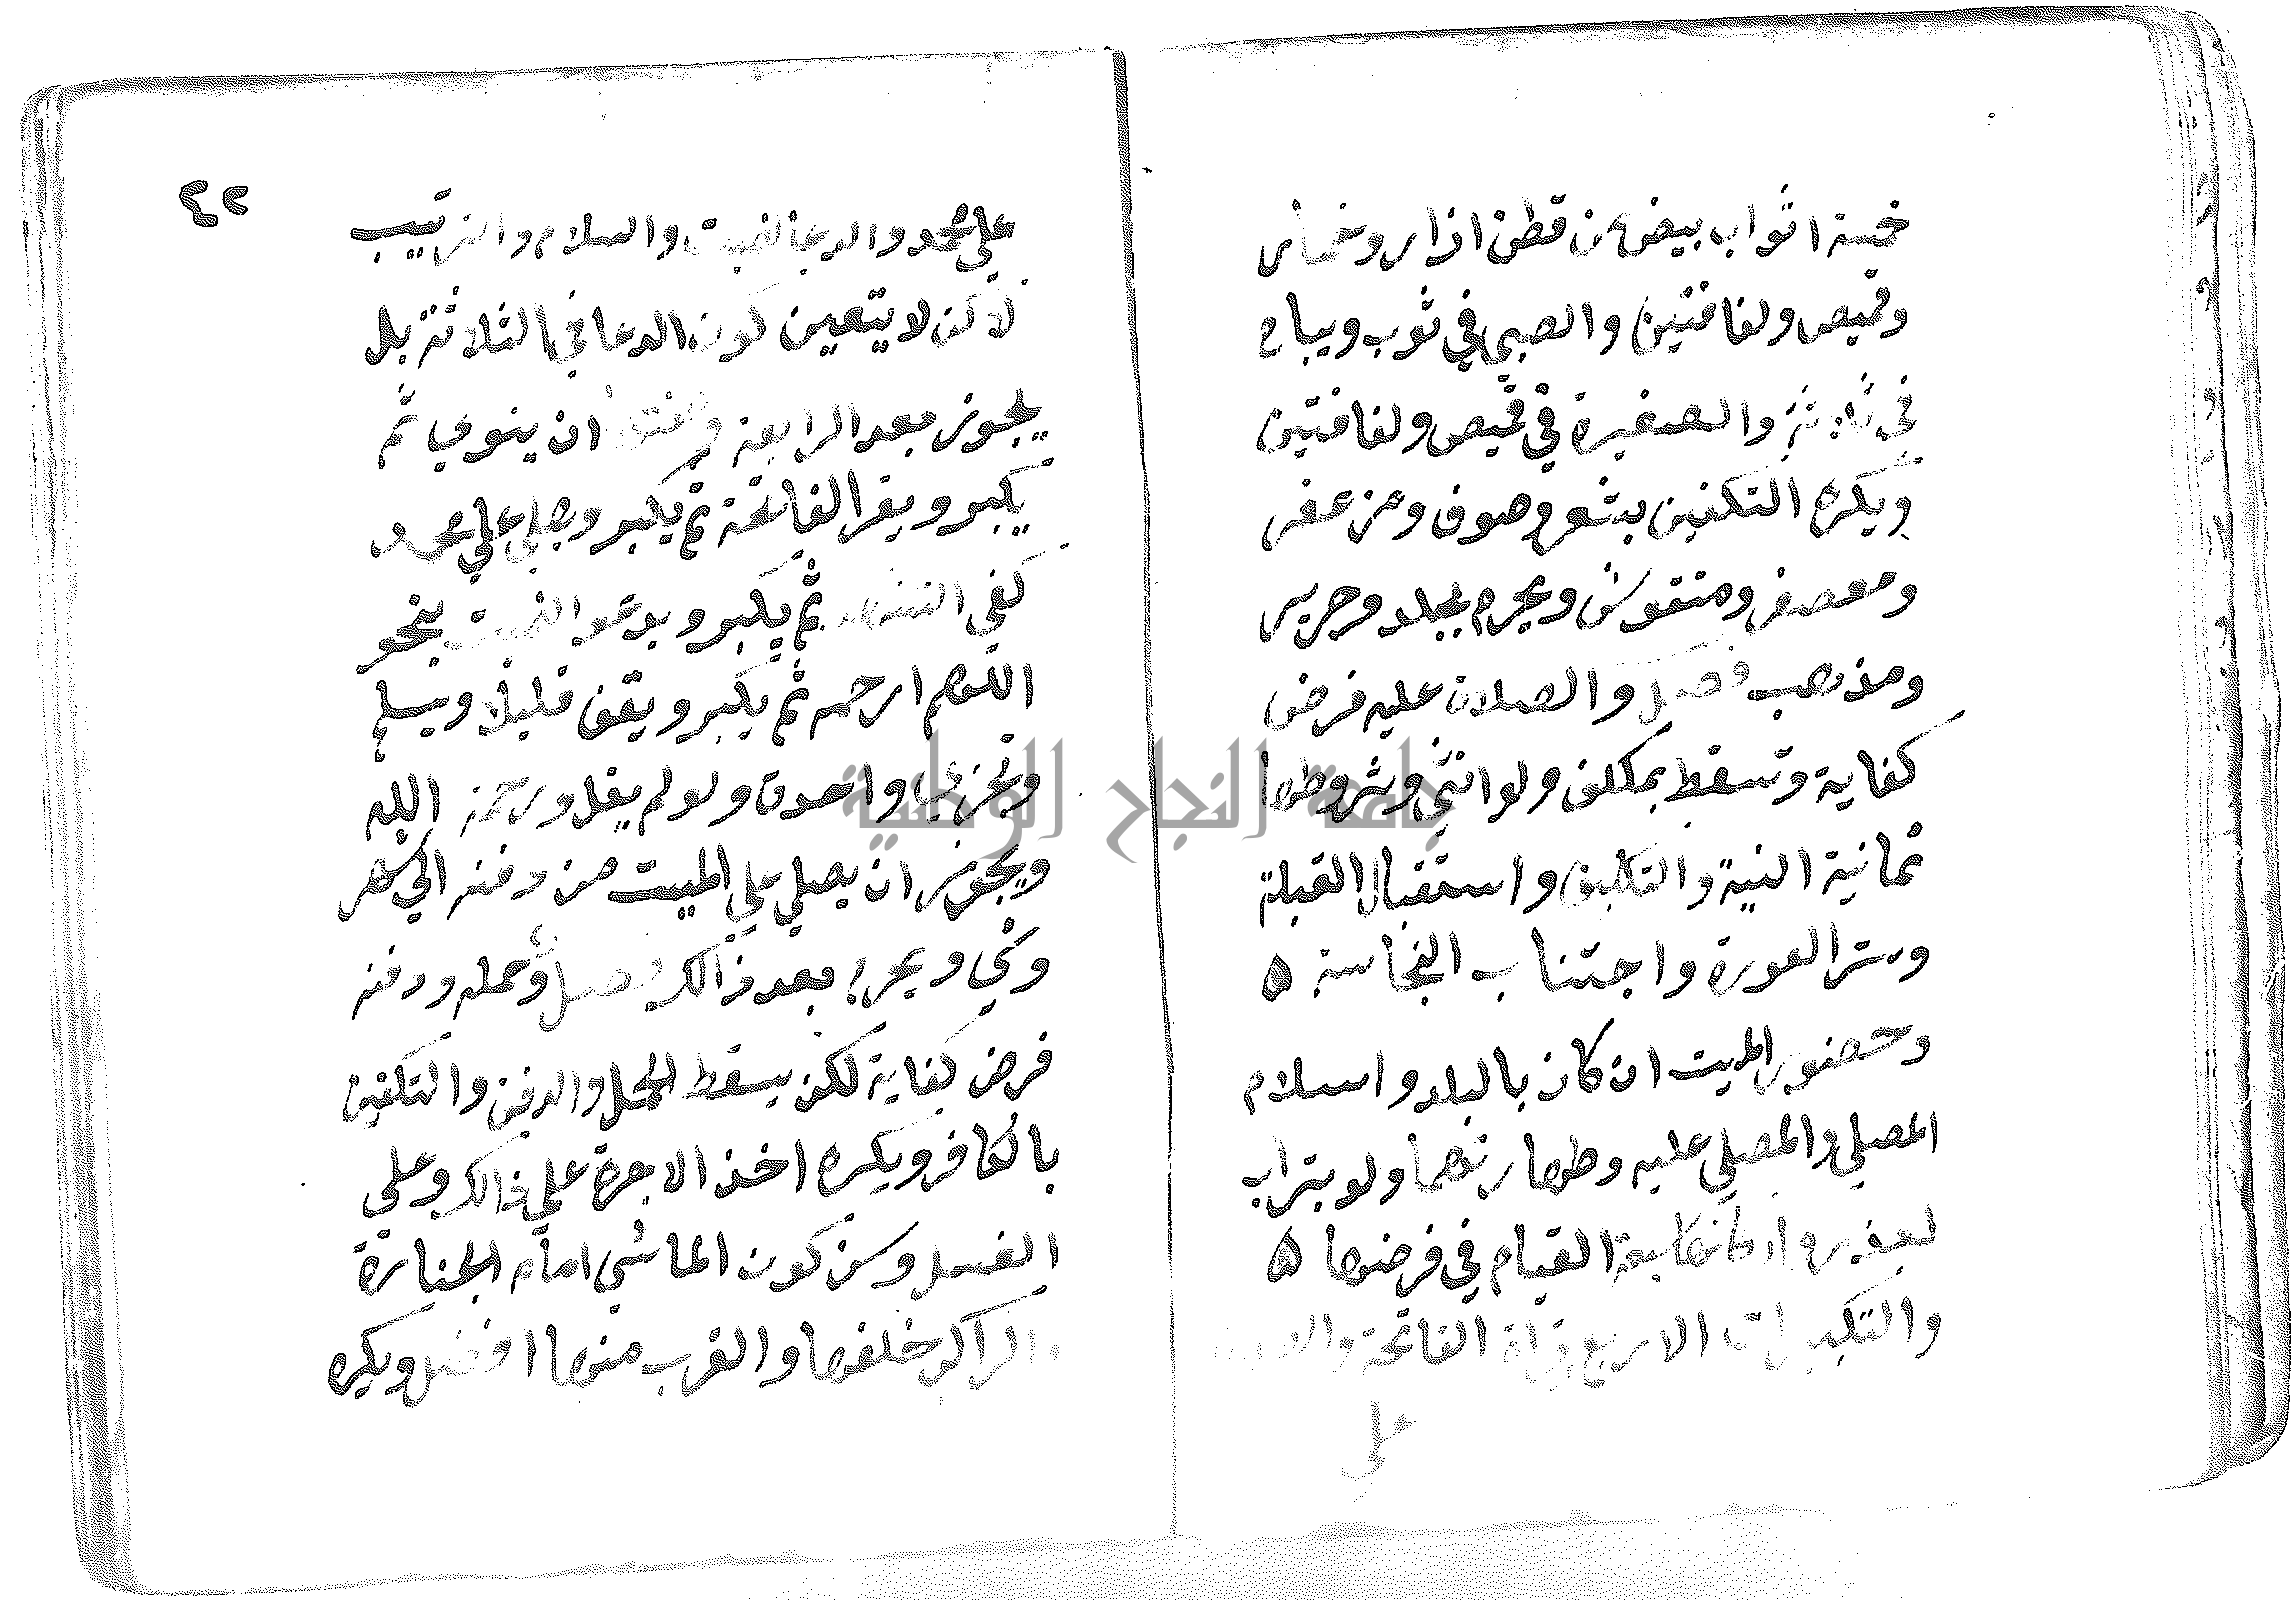 خمسة اثواب بيض من قطن ازار وخمار
وقميص ولفافتين والصبي في ثوب ويباح
في ثلاثة والصغيرة في قميص ولفافتين
ويكره التكفين بشعر وصوف ومزعفر
ومعصفر ومنقوش ويحرم بجلد وحرير
ومذهب فصل والصلاة عليه فرض
كفاية وتسقط بمكلف ولو انثى وشروطها
ثمانية النية والتكليف واستقبال القبلة
وستر العورة واجتناب النجاسة ٥
وحضور الميت ان كان بالبلد واسلام
المصلي والمصلى عليه وطهارتهما ولو بتراب
لعذر واركانها سبعة القيام في فرضها ٥
والتكبيرات الاربع وقراة الفاتحة
على
٤٢
على محمد والدعا للميت والسلام والترتيب
لاكن لا يتعين كون الدعا في الثلاثة بل
يجوز بعد الرابعة وصفتها ان ينوي ثم
يكبر ويقرا الفاتحة ثم يكبر ويصلي على محمد
كفي التشهد ثم يكبر ويدعوا للميت بنحو
اللهم ارحمه ثم يكبر ويقف قليلا ويسلم
وتجزي واحدة ولو لم يقل ورحمة الله
ويجوز ان يصلي على الميت من دفنه الى شهر
وشي ويحرم بعد ذالك فصل وحمله ودفنه
فرض كفاية لكن يسقط الحمل والدفن والتكفين
بالكافر ويكره اخذ الاجرة على ذالك وعلى
الغسل وسن كون الماشي امام الجنازة
والراكب خلفها والقرب منها افضل ويكره
جامعة النجاح الوطنية